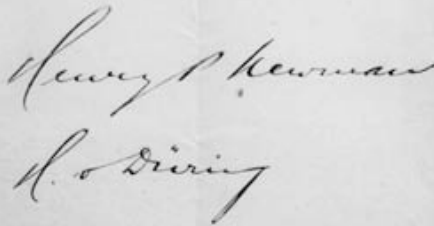 Henry P Newman
H. v Düring